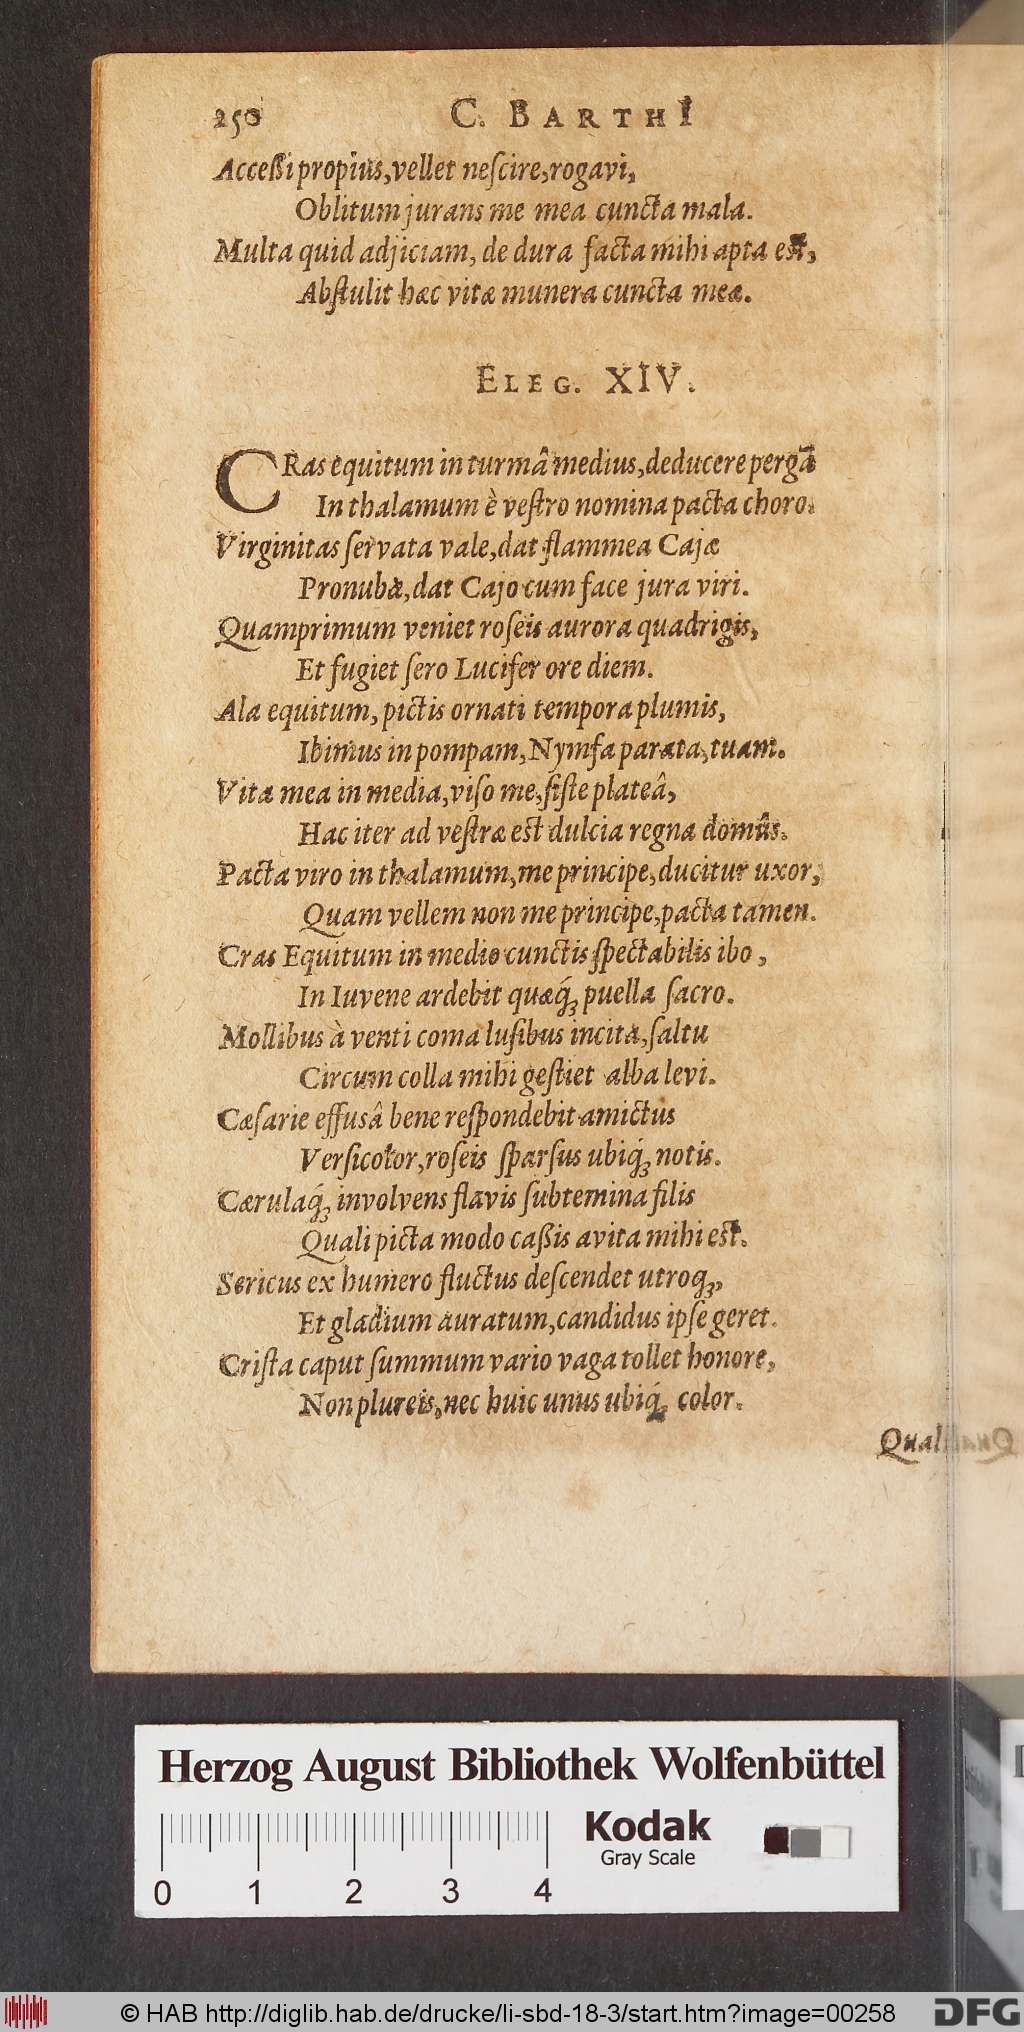 250 C. BARTHI
Acceßi propius, vellet neſcire, rogavi,
Oblitum jurans me mea cuncta mala.
Multa quid adjiciam, de dura facta mihi apta est,
Abſtulit hæc vitæ munera cuncta meæ.
ELEG. XIV.
CRas equitum in turmâ medius, deducere pergā
In thalamum è veſtro nomina pacta choro.
Virginitas ſervata vale, dat flammea Cajæ
Pronubæ, dat Cajo cum face jura viri.
Quamprimum veniet roſeis aurora quadrigis,
Et fugiet ſero Lucifer ore diem.
Ala equitum, pictis ornati tempora plumis,
Ibimus in pompam, Nymfa parata, tuam.
Vita mea in media, viſo me, ſiſte plateâ,
Hac iter ad veſtræ est dulcia regna domûs.
Pacta viro in thalamum, me principe, ducitur uxor,
Quam vellem non me principe, pacta tamen.
Cras Equitum in medio cunctis ſpectabilis ibo,
In Iuvene ardebit quæq́; puella ſacro.
Mollibus à venti coma luſibus incita, ſaltu
Circum colla mihi geſtiet alba levi.
Cæſarie effusâ bene reſpondebit amictus
Verſicolor, roſeis ſparſus ubiq́; notis.
Cærulaq́; involvens flavis ſubtemina filis
Quali picta modo caßis avita mihi est.
Sericus ex humero fluctus deſcendet utroq;,
Et gladium auratum, candidus ipſe geret.
Criſta caput ſummum vario vaga tollet honore,
Non plureis, nec huic unus ubiq́; color.
Qual
Herzog August Bibliothek Wolfenbüttel
Kodak
Gray Scale
0 1 2 3 4
© HAB http://diglib.hab.de/drucke/li-sbd-18-3/start.htm?image=00258
DFG